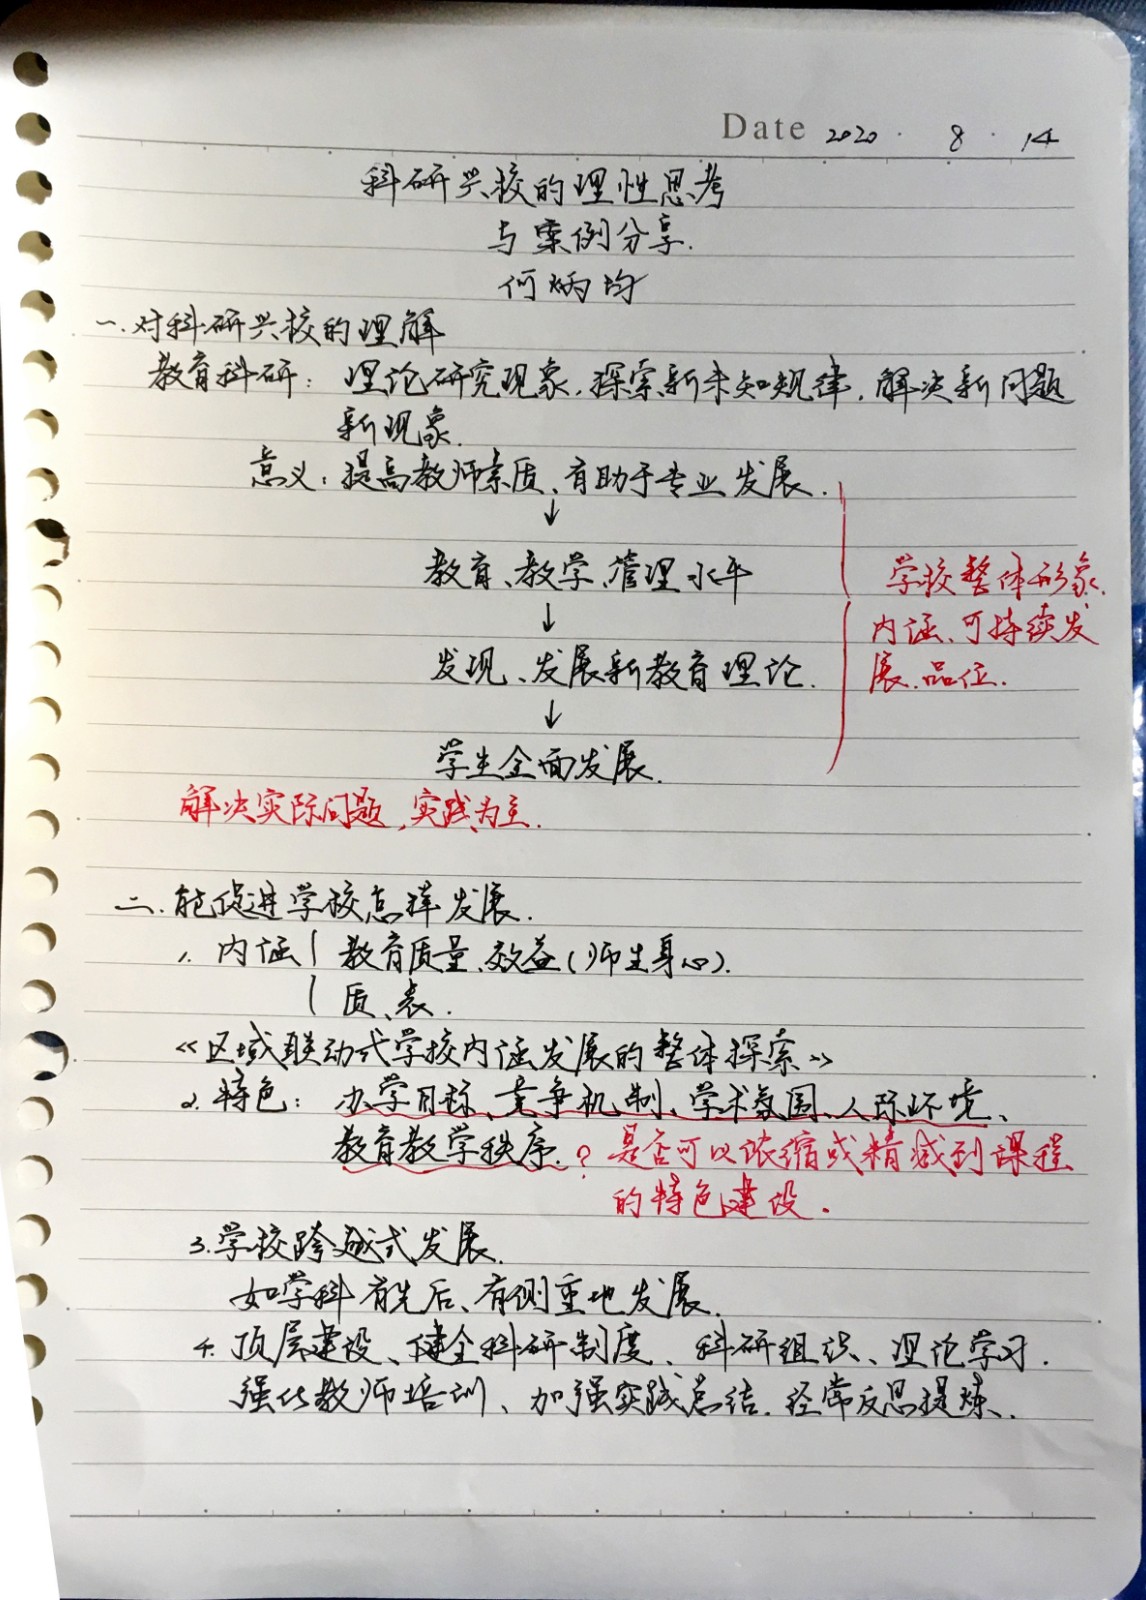 Date 2020 · 8 · 14
科研兴校的理性思考
与案例分享.
何炳均
一.对科研兴校的理解
教育科研: 理论研究现象,探索新未知规律,解决新问题
新现象.
意义:提高教师素质、有助于专业发展.
↓
教育、教学、管理水平
↓
发现、发展新教育理论.
↓
学生全面发展.
学校整体形象.
内涵、可持续发
展.品位.
解决实际问题,实践为主.
二.能促进学校怎样发展.
1. 内涵 教育质量、效益(师生身心).
质、表.
《区域联动式学校内涵发展的整体探索》
2. 特色: 办学目标、竞争机制、学术氛围、人际环境、
教育教学秩序.? 是否可以浓缩或精减到课程
的特色建设.
3.学校跨越式发展.
如学科有先后、有侧重地发展.
4. 顶层建设、健全科研制度、科研组织、理论学习.
强化教师培训、加强实践总结.经常反思提炼、